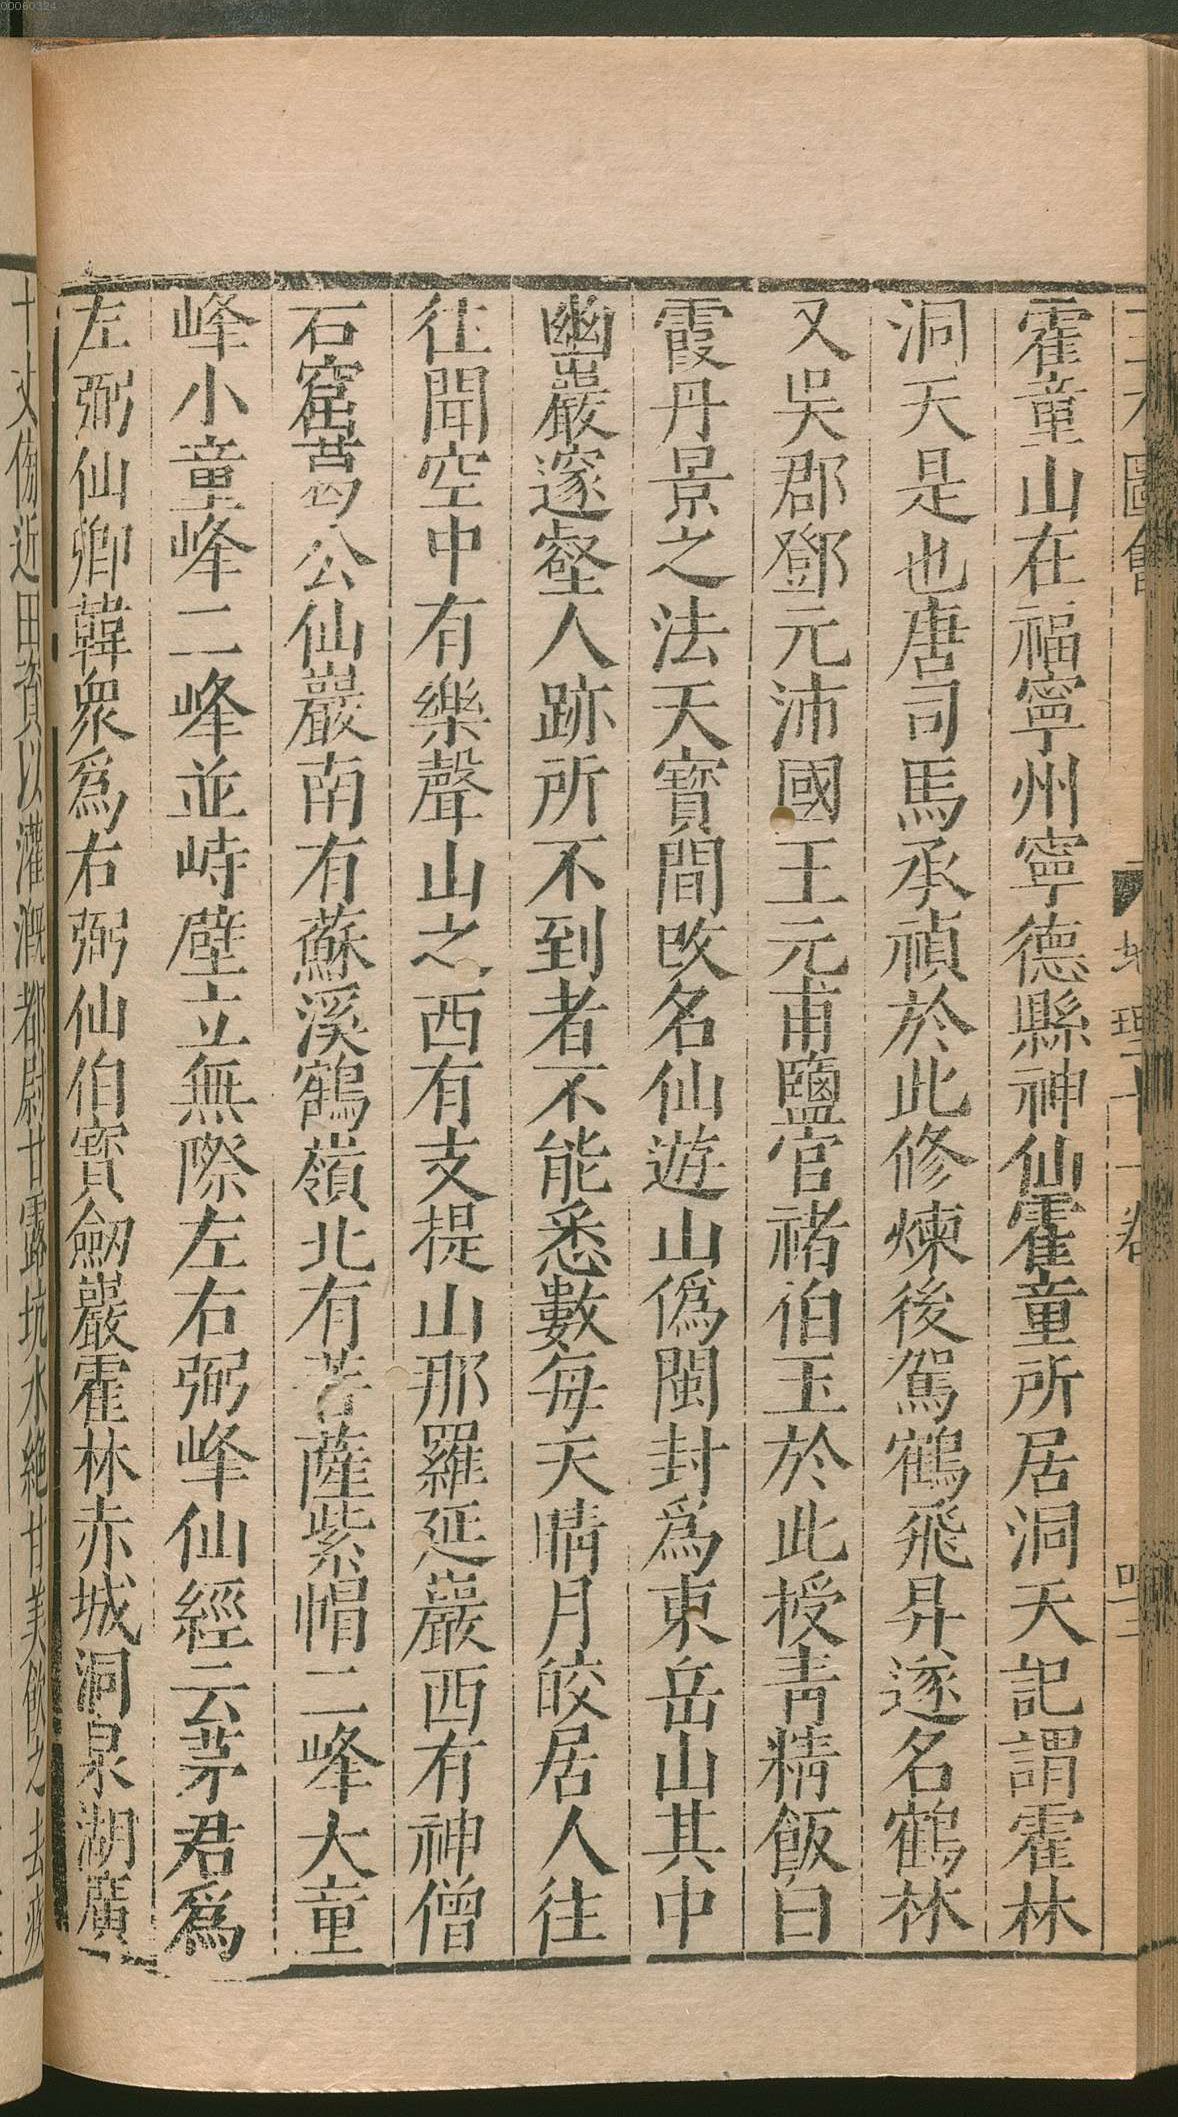 霍童山在福寧州寧德縣神仙霍童所居洞天記謂霍林
洞天是也唐司馬承禎於此修煉後駕鶴飛昇遂名鶴林
又吳郡鄧元沛國王元甫鹽官褚伯玉於此授青精飯白
霞丹景之法天寶間改名仙遊山僞閩封爲東岳山其中
幽巖邃壑人跡所不到者不能悉數每天晴月皎居人往
往聞空中有樂聲山之西有支提山那羅延巖西有神僧
石窟葛公仙巖南有蘇溪鶴嶺北有菩薩紫帽二峰大童
峰小童峰二峰並峙壁立無際左右弼峰仙經云茅君爲
左弼仙卿韓衆爲右弼仙伯寶劒巖霍林赤城洞泉湖廣
十丈傍近田資以灌溉都尉甘露坑水絶甘美飲之去
00060324